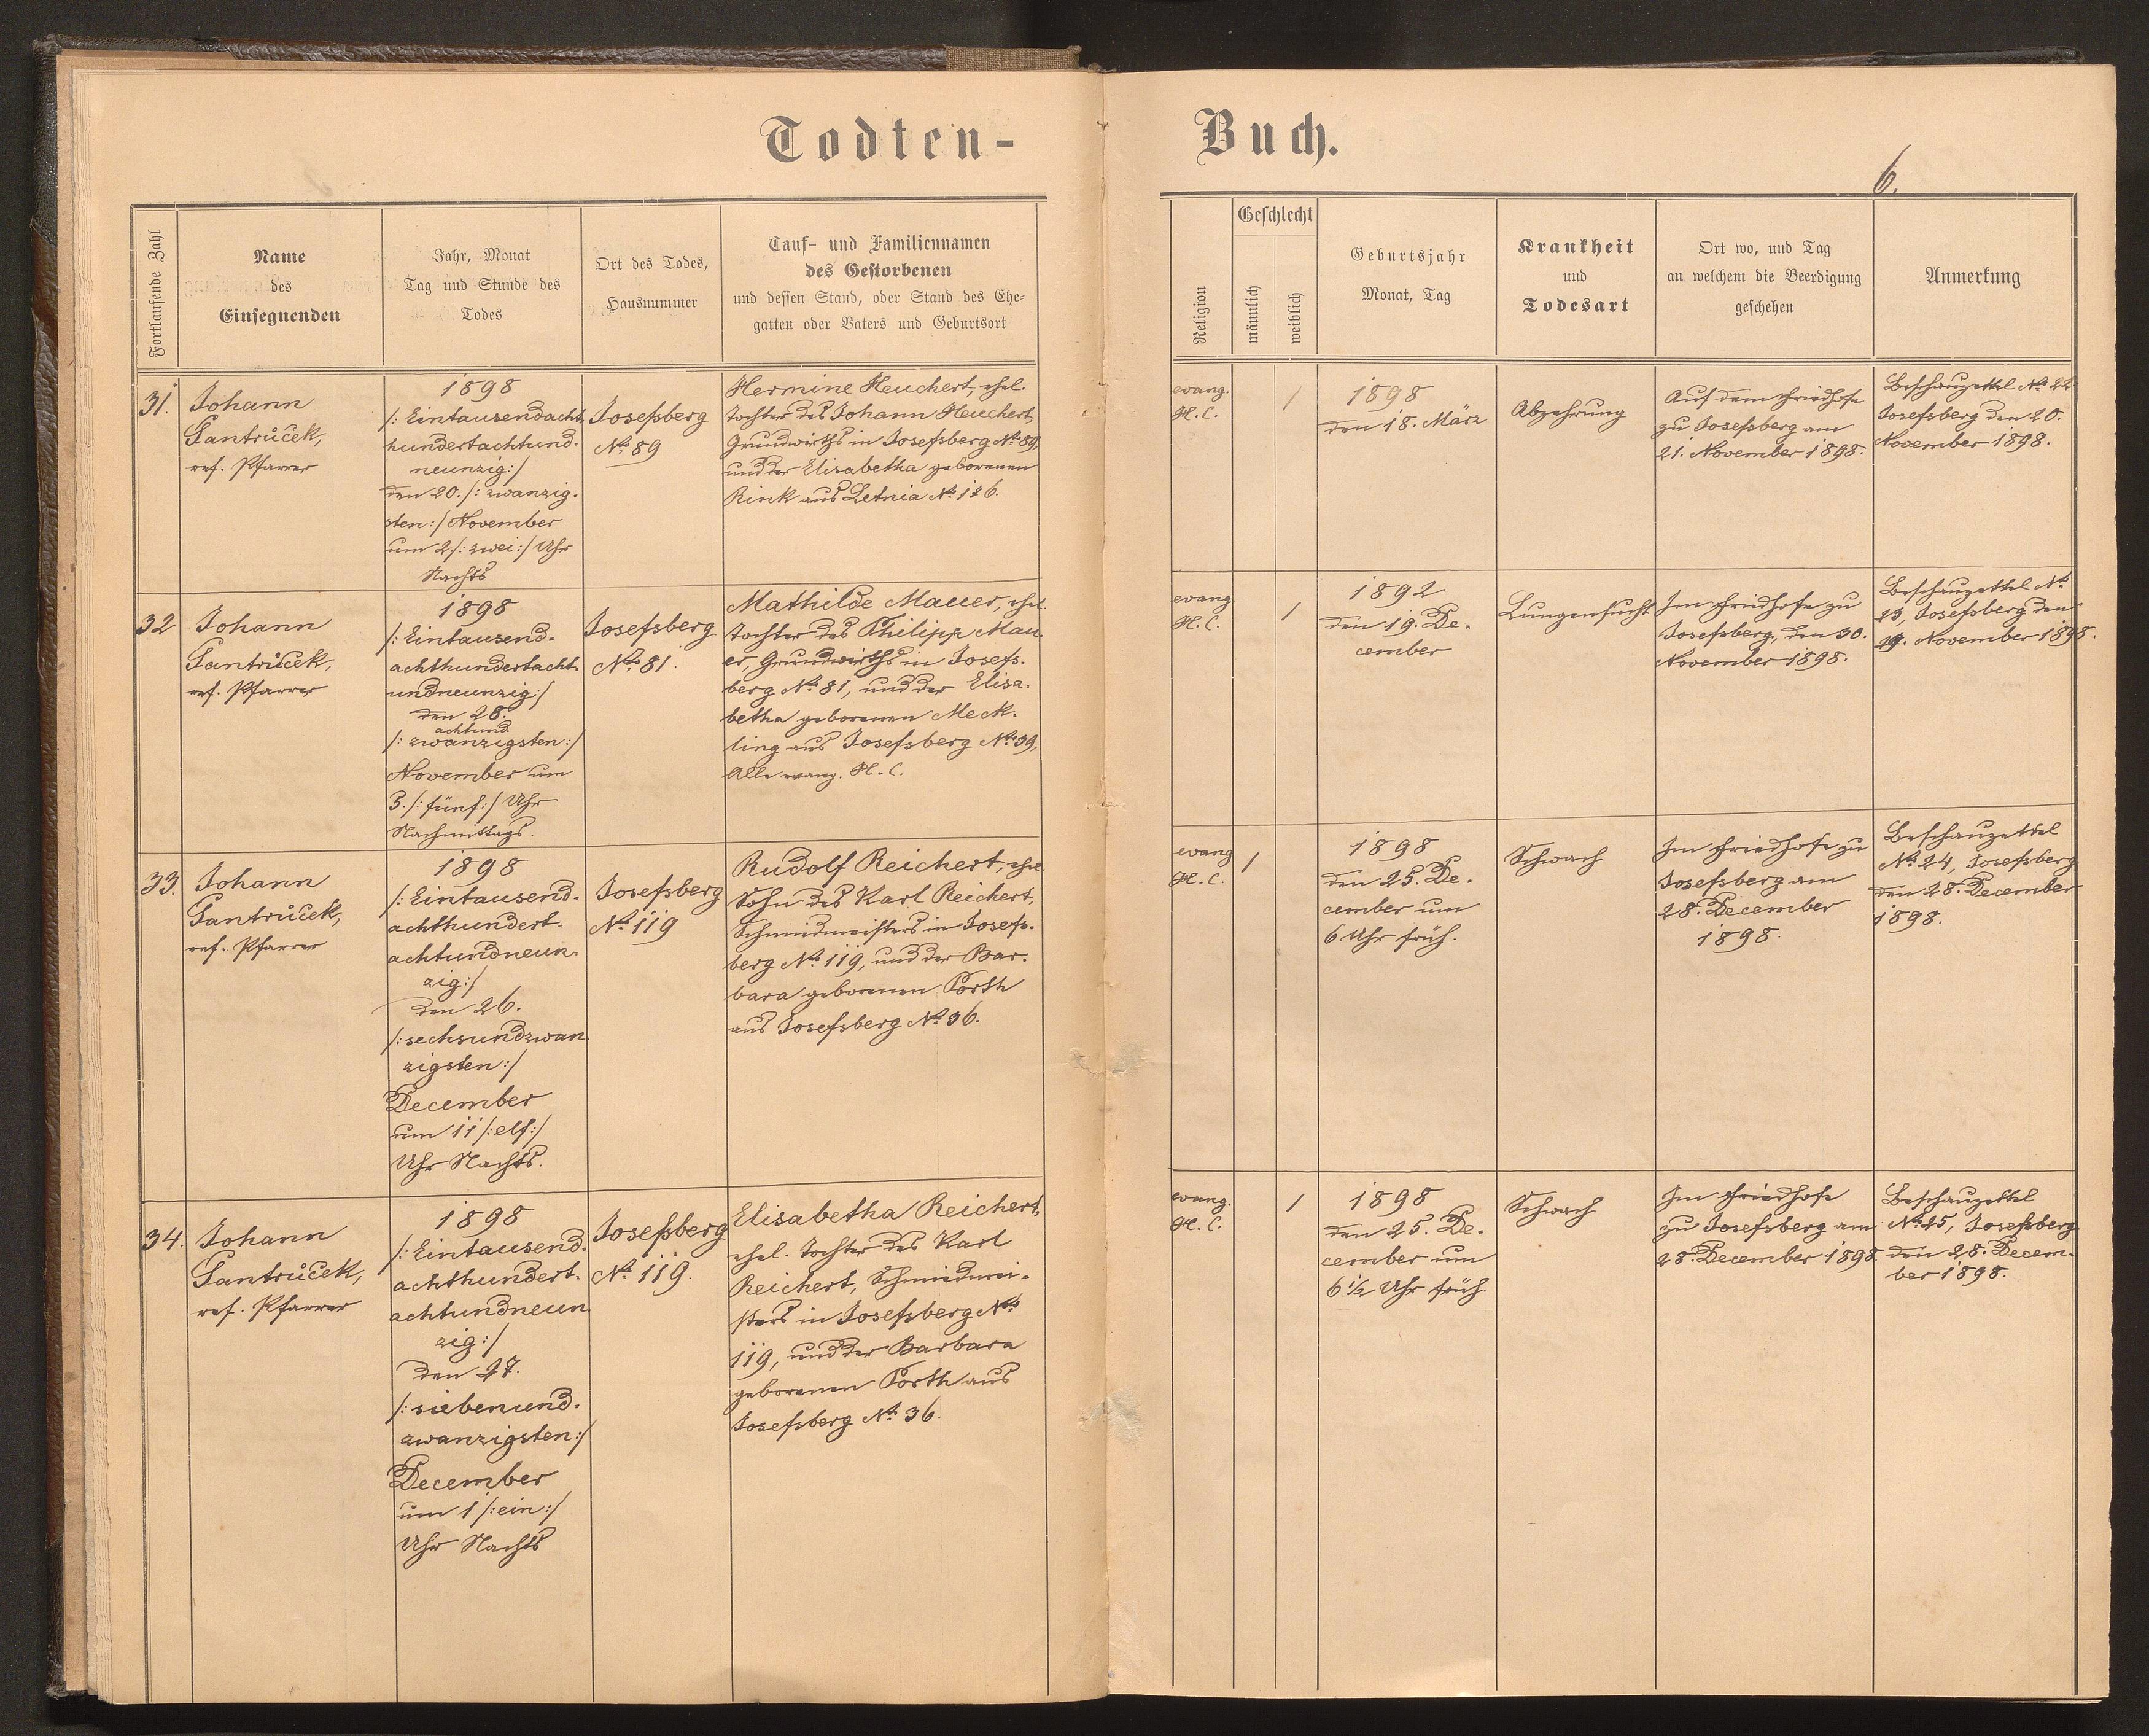 Todten-
Buch.
6.
Fortlaufende Zahl
Name
des
Einsegnenden
Jahr, Monat
Tag und Stunde des
Todes
Ort des Todes,
Hausnummer
Tauf- und Familiennamen
des Gestorbenen
und dessen Stand, oder Stand des Ehe-
gatten oder Vaters und Geburtsort
Religion
Geschlecht
männlich
weiblich
Geburtsjahr
Monat, Tag
Krankheit
und
Todesart
Ort wo, und Tag
an welchem die Beerdigung
geschehen
Anmerkung
31.
Johann
Jantrůček,
ref. Pfarrer
1898
/: Eintausendacht-
hundertachtund-
neunzig :/
den 20. /: zwanzig-
sten :/ November
um 2 /: zwei :/ Uhr
Nachts
Josefsberg
No. 89
Hermine Heuchert, ehel.
Tochter des Johann Heuchert,
Grundwirths in Josefsberg No. 89,
und der Elisabetha geborenen
Rink aus Letnia No.
evang.
H. C.
1
1898
den 18. März
Abzehrung
Auf dem Friedhofe
zu Josefsberg am
21. November 1898.
Beschauzettel No. 22
Josefsberg den 20.
November 1898.
32
Johann
Jantrůček,
ref. Pfarrer
1898
/: Eintausend-
achthundertacht-
undneunzig :/
den 28.
achtund
/: zwanzigsten :/
November um
/: fünf :/ Uhr
Nachmittags.
Josefsberg
No. 81.
Mathilde Mauer, ehel.
Tochter des Philipp Mau-
er, Grundwirths in Josefs-
berg No. 81, und der Elisa-
betha geborenen Meck-
ling aus Josefsberg No. 39,
Alle evang. H. C.
evang
H. C.
1
1892
den 19. De-
cember
Lungensucht
Im Friedhofe zu
Josefsberg, den 30.
November 1898.
Beschauzettel No.
23, Josefsberg den
November 1898.
33.
Johann
Jantrůček,
ref. Pfarrer
1898
/: Eintausend-
achthundert-
achtundneun-
zig :/
den 26.
/: sechsundzwan-
zigsten :/
December
um 11 /: elf :/
Uhr Nachts.
Josefsberg
No. 119
Rudolf Reichert, ehel.
Sohn des Karl Reichert,
Schmidmeisters in Josefs-
berg No. 119, und der Bar-
bara geborenen Porth
aus Josefsberg No. 36.
evang
H. C.
1
1898
den 25. De-
cember um
6 Uhr früh.
Schwach
Im Friedhofe zu
Josefsberg am
28. December
1898.
Beschauzettel
No. 24, Josefsberg
den 28. December
1898.
34.
Johann
Jantrůček,
ref. Pfarrer
1898
/: Eintausend-
achthundert-
achtundneun
zig :/
den 27.
/: siebenund-
zwanzigsten :/
December
um 1 /: ein :/
Uhr Nachts
Josefsberg
No. 119.
Elisabetha Reichert,
ehel. Tochter des Karl
Reichert, Schmidmei-
sters in Josefsberg No.
119, und der Barbara
geborenen Porth aus
Josefsberg No. 36.
evang.
H. C.
1
1898
den 25. De-
cember um
6 1/2 Uhr früh.
Schwach
Im Friedhofe
zu Josefsberg am
28. December 1898.
Beschauzettel
No. 25, Josefsberg
den 28. Decem-
ber 1898.